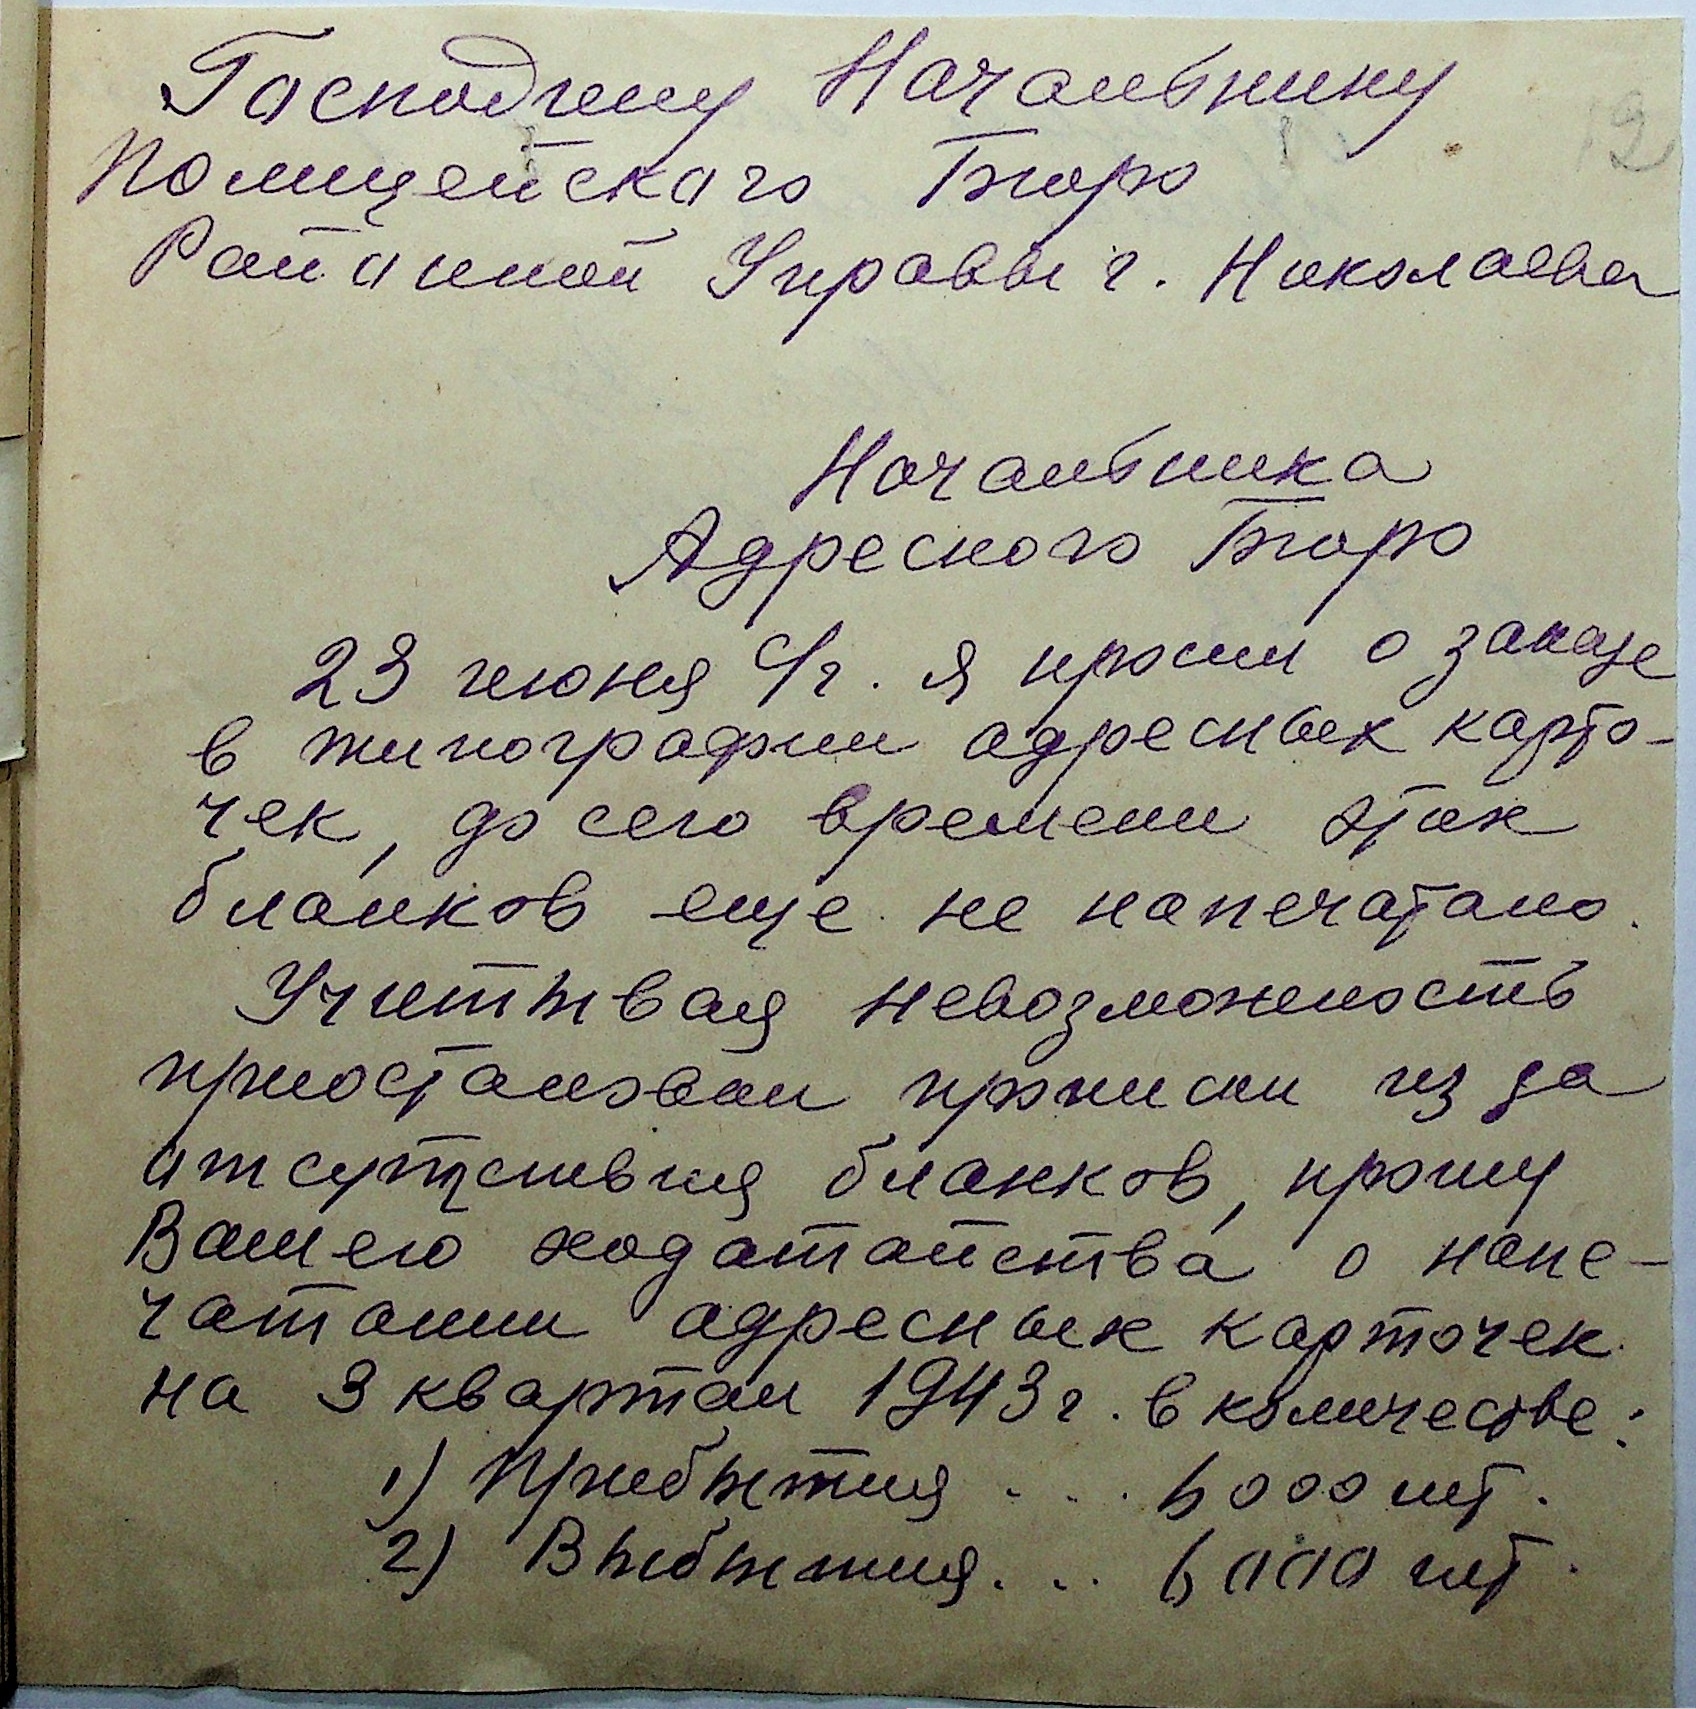 Господину Начальнику
Полицейского Бюро
Районной Управы г. Николаева
2
Начальника
Адресного Бюро
23 июня с/г. я просил о заказе
в типографии адресных карто-
чек, до сего времени этих
бланков еще не напечатано.
Учитывая невозможность
приостановки прописки из за
отсутствия бланков, прошу
Вашего ходатайства о напе-
чатании адресных карточек
на 3 квартал 1943 г. в количестве:
1) Прибытия . . . 6000 шт.
2) Выбытия . . . 6000 шт.